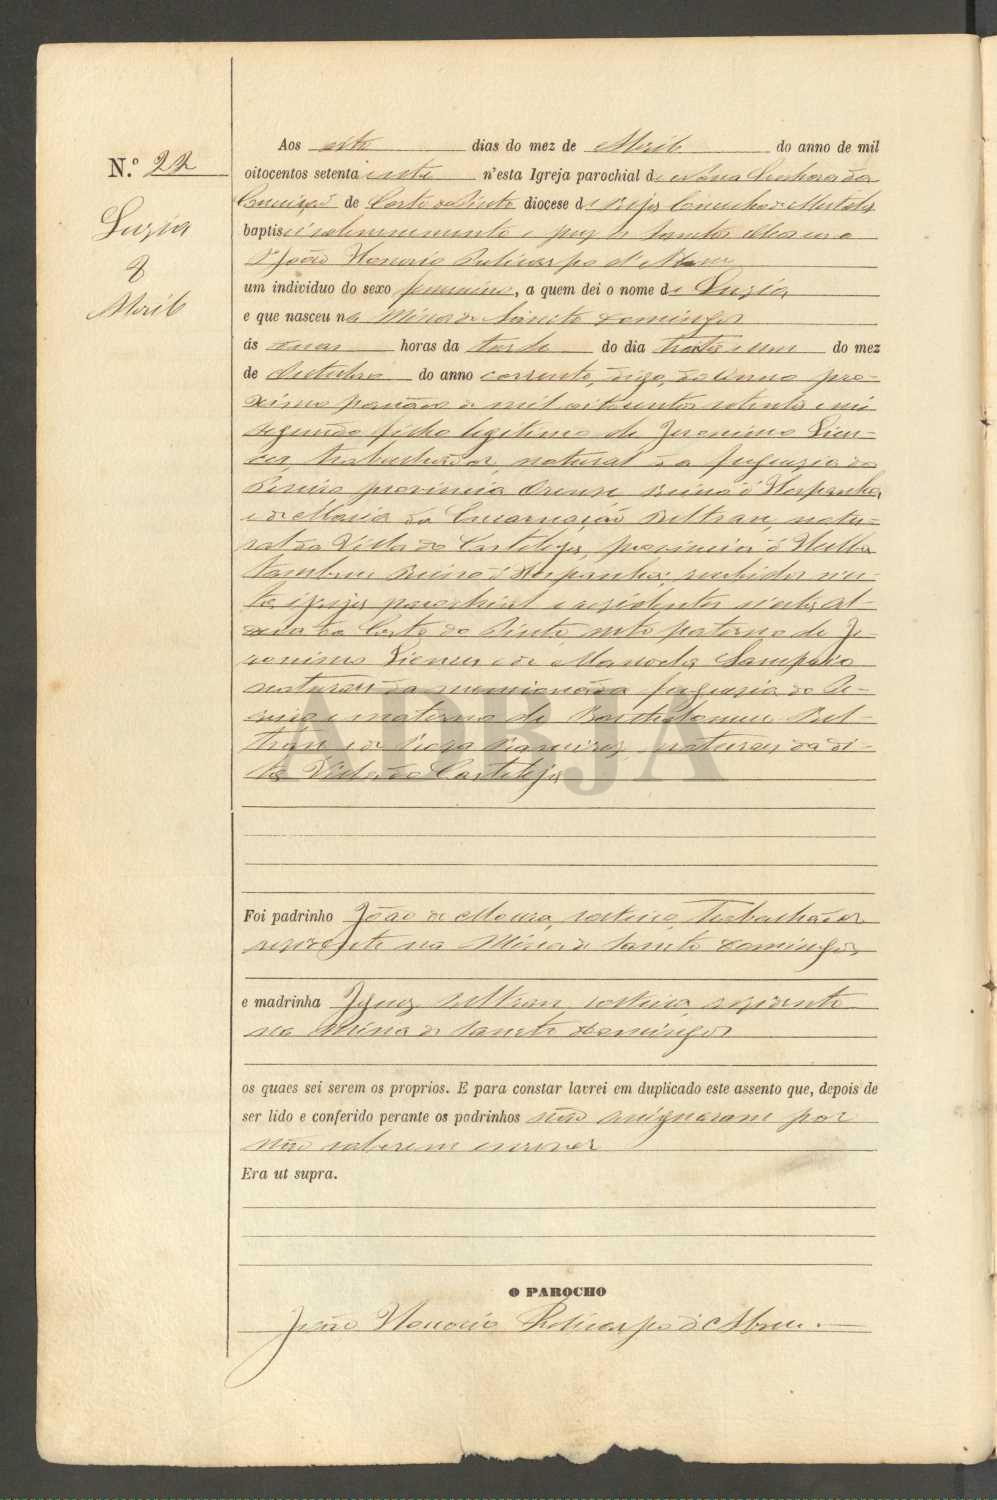 N.º 22
Luzia
8
Abril
Aos oito dias do mez de Abril do anno de mil
oitocentos setenta e sete n'esta Igreja parochial de Nossa Senhora da
Conceição de Corte do Pinto diocese de Beja Concelho de Mertola
baptisei solemnemente e puz os Sanctos Oleos eu o
Pe João Honorio Policarpo d'Abreu
um individuo do sexo feminino, a quem dei o nome de Luzia
e que nasceu na Mina de Sancto Domingos
ás duas horas da tarde do dia trinta e um do mez
de Outubro do anno corrente, digo, do anno pro-
ximo passado de mil oitocentos setenta e seis
segundo filho legitimo de Jeronimo
trabalhador, natural da freguezia do
Pereiro provincia Orense, Reino d'Hespanha,
e de Maria da Encarnação Beltran, natu-
ral da Villa do Castilejo, provincia d'Huelba
tambem Reino d'Hespanha; recebidos n'es-
ta igreja parochial e residentes n'esta Al-
deia da Corte do Pinto, neto paterno de Je-
ronimo e de Manoela Sampaio
naturaes da mencionada freguezia do Pe-
reiro e materno de Bartholomeu Bel-
tran, e de naturaes da di-
ta Villa do Castilejo
Foi padrinho João de Moura, solteiro, Trabalhador
residente na Mina de Sancto Domingos,
e madrinha Ignez Beltran, solteira, residente
na Mina de Sancto Domingos
os quaes sei serem os proprios. E para constar lavrei em duplicado este assento que, depois de
ser lido e conferido perante os padrinhos não assignaram por
não saberem escrever
Era ut supra.
O PAROCHO
João Honorio Policarpo d'Abreu.
ADBJA